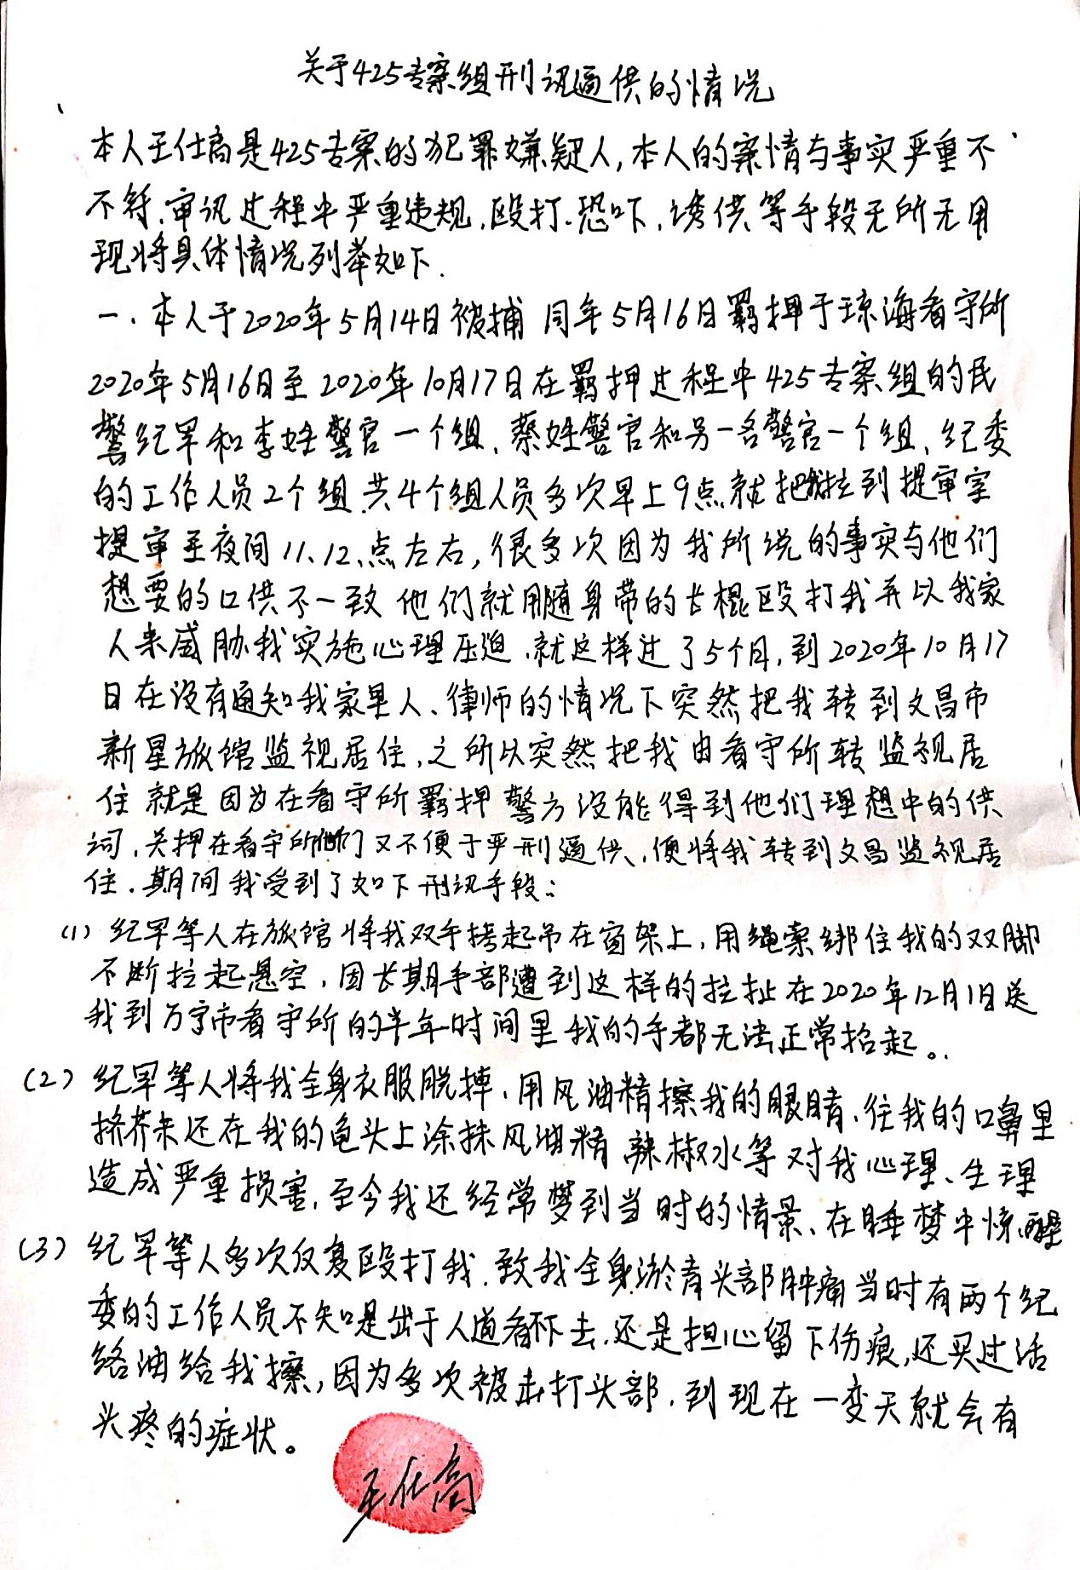 关于425专案组刑讯逼供的情况
本人王仕高是425专案的犯罪嫌疑人,本人的案情与事实严重不
不符.审讯过程中严重违规,殴打.恐吓,诱供等手段无所无用
现将具体情况列举如下.
一、本人于2020年5月14日被捕 同年5月16日羁押于琼海看守所
2020年5月16日至2020年10月17日在羁押过程中425专案组的民
警纪罕和李姓警官一个组、蔡姓警官和另一名警官一个组、纪委
的工作人员2个组.共4个组人员多次早上9点就把我拉到提审室
提审至夜间11.12.点左右,很多次因为我所说的事实与他们
想要的口供不一致 他们就用随身带的长棍殴打我并以我家
人来威胁我实施心理压迫.就这样过了5个月,到2020年10月17
日在没有通知我家里人、律师的情况下突然把我转到文昌市
新星旅馆监视居住,之所以突然把我由看守所转监视居
住就是因为在看守所羁押警方没能得到他们理想中的供
词,关押在看守所他们又不便于严刑逼供、便将我转到文昌监视居
住.期间我受到了如下刑讯手段:
(1)纪罕等人在旅馆将我双手拷起吊在窗架上,用绳索绑住我的双脚
不断拉起悬空,因长期手部遭到这样的拉扯在2020年12月1日送
我到万宁市看守所的半年时间里我的手都无法正常抬起。
(2)纪罕等人将我全身衣服脱掉、用风油精擦我的眼睛、往我的口鼻里
挤芥末还在我的龟头上涂抹风油精 辣椒水等对我心理、生理
造成严重损害,至今我还经常梦到当时的情景、在睡梦中惊醒
(3)纪罕等人多次反复殴打我.致我全身淤青头部肿痛当时有两个纪
委的工作人员不知是出于人道看不下去.还是担心留下伤痕,还买过活
络油给我擦,因为多次被击打头部.到现在一变天就会有
头疼的症状。
王仕高